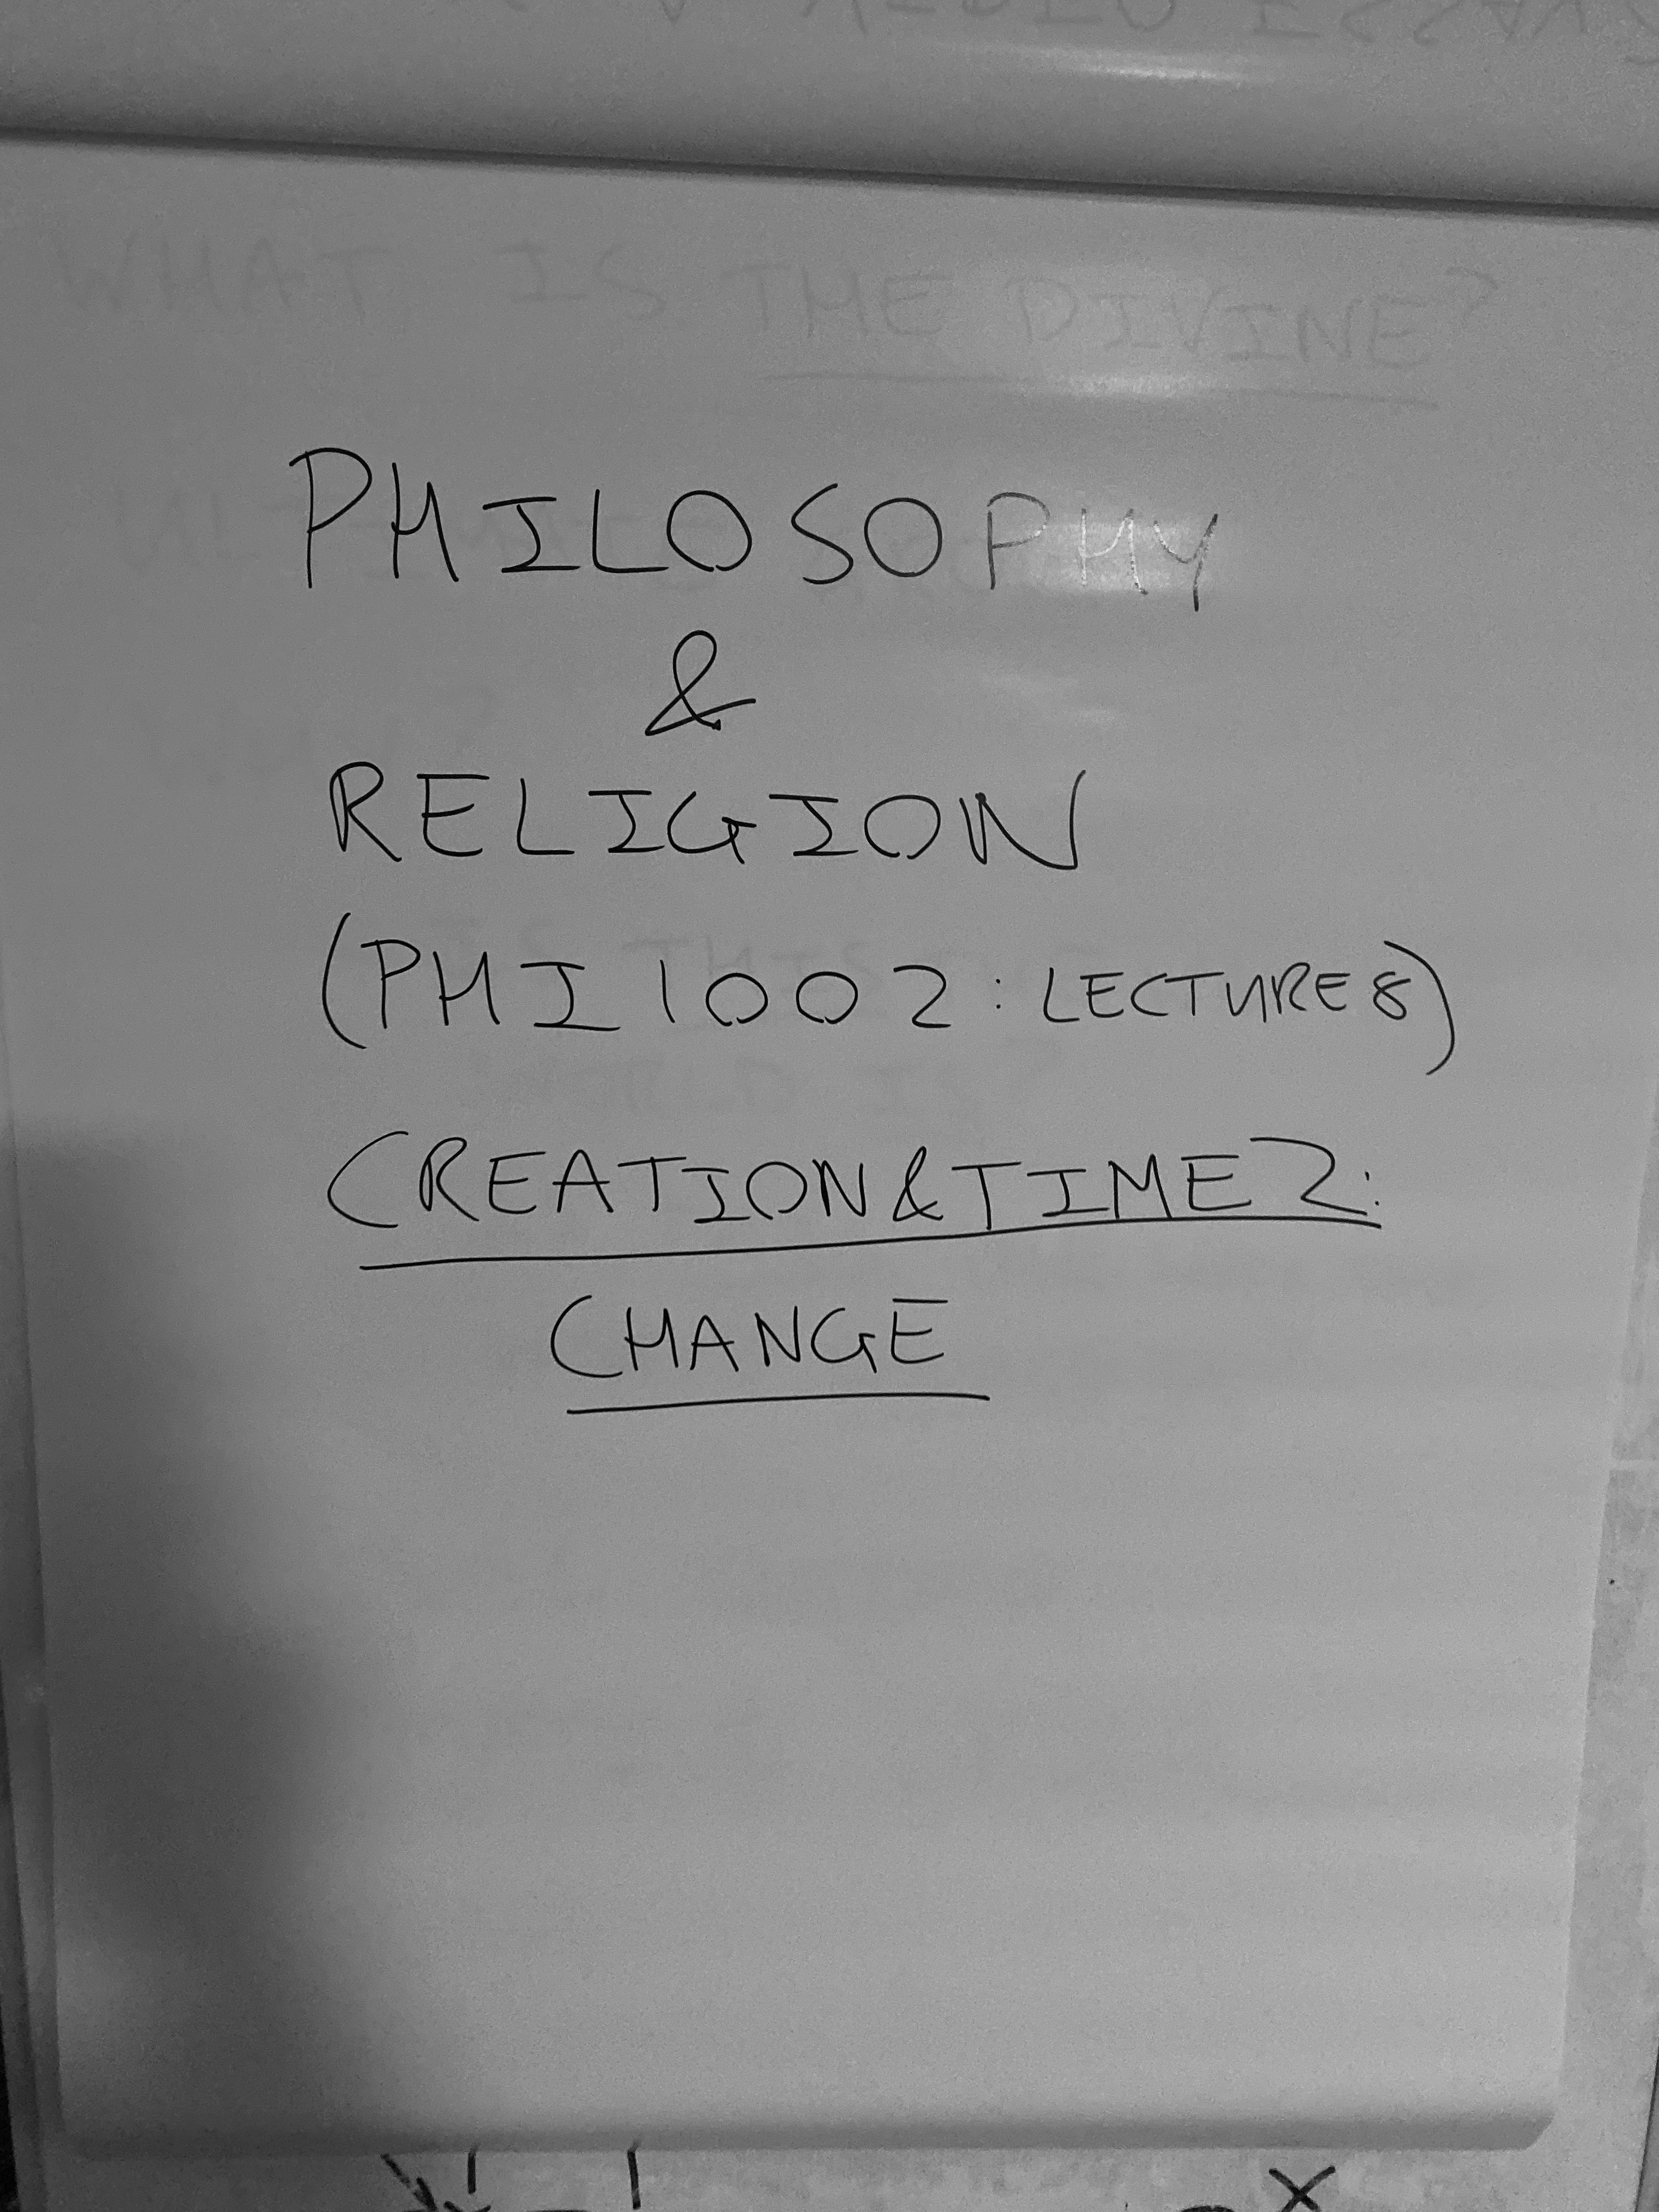 WHAT IS THE DIVINE?
PHILOSOPHY
&
RELIGION
(PHI1002: LECTURE 8)
CREATION & TIME 2:
CHANGE